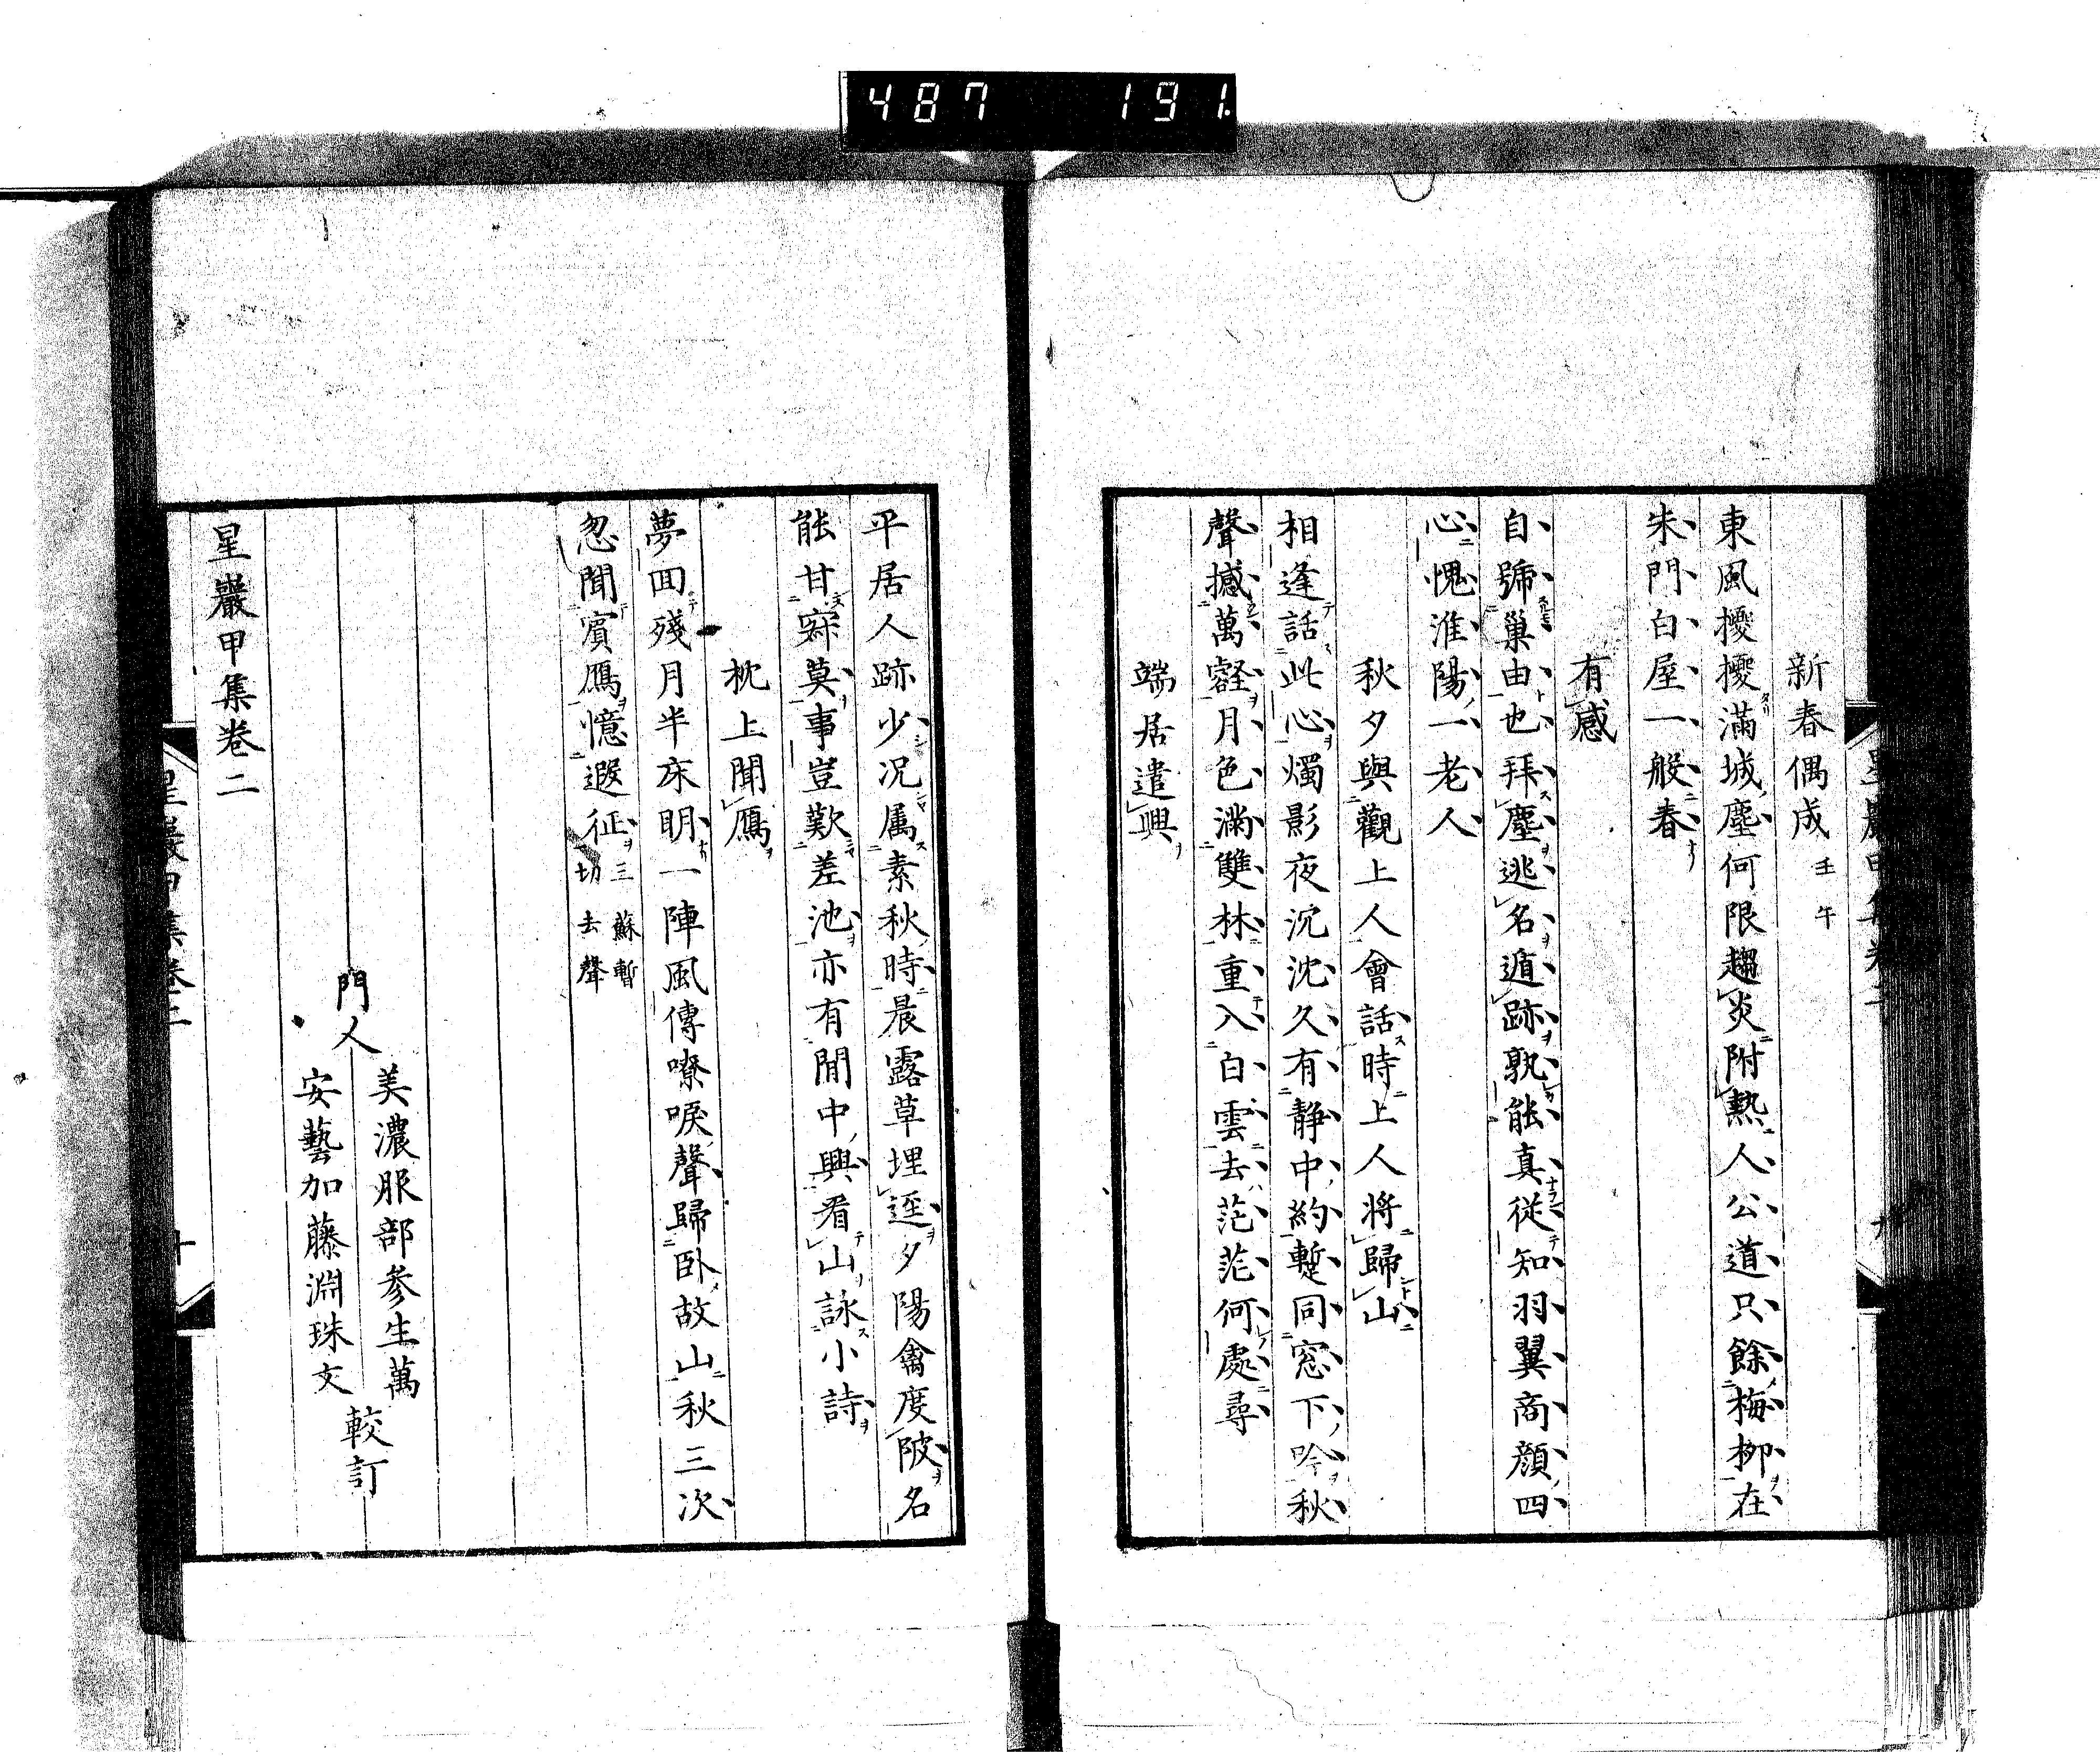 487 191
新春偶成 壬午
東風擾擾滿城塵何限趨炎附熱人公道只餘梅柳在
朱門白屋一般春
有感
自號巢由也拜塵逃名遁跡孰能真從知羽翼商顏四
心愧淮陽一老人
秋夕與觀上人會話時上人將歸山
相逢話此心燭影夜沉沈久有静中約蹔同窓下吟秋
聲撼萬壑月色滿雙林重入白雲去茫茫何處尋
端居遣興
平居人跡少况属素秋時晨露草埋逕夕陽禽度陂名
能甘寂莫事豈歎差池亦有閒中興看山詠小詩
枕上聞鴈
夢回殘月半床明一陣風傳嘹唳聲歸卧故山秋三次
忽聞賓鴈憶遐征 三蘇暫
切去聲
門人
美濃服部参生萬
安藝加藤淵珠文
較訂
星巖甲集卷二
星巖甲集卷二 十